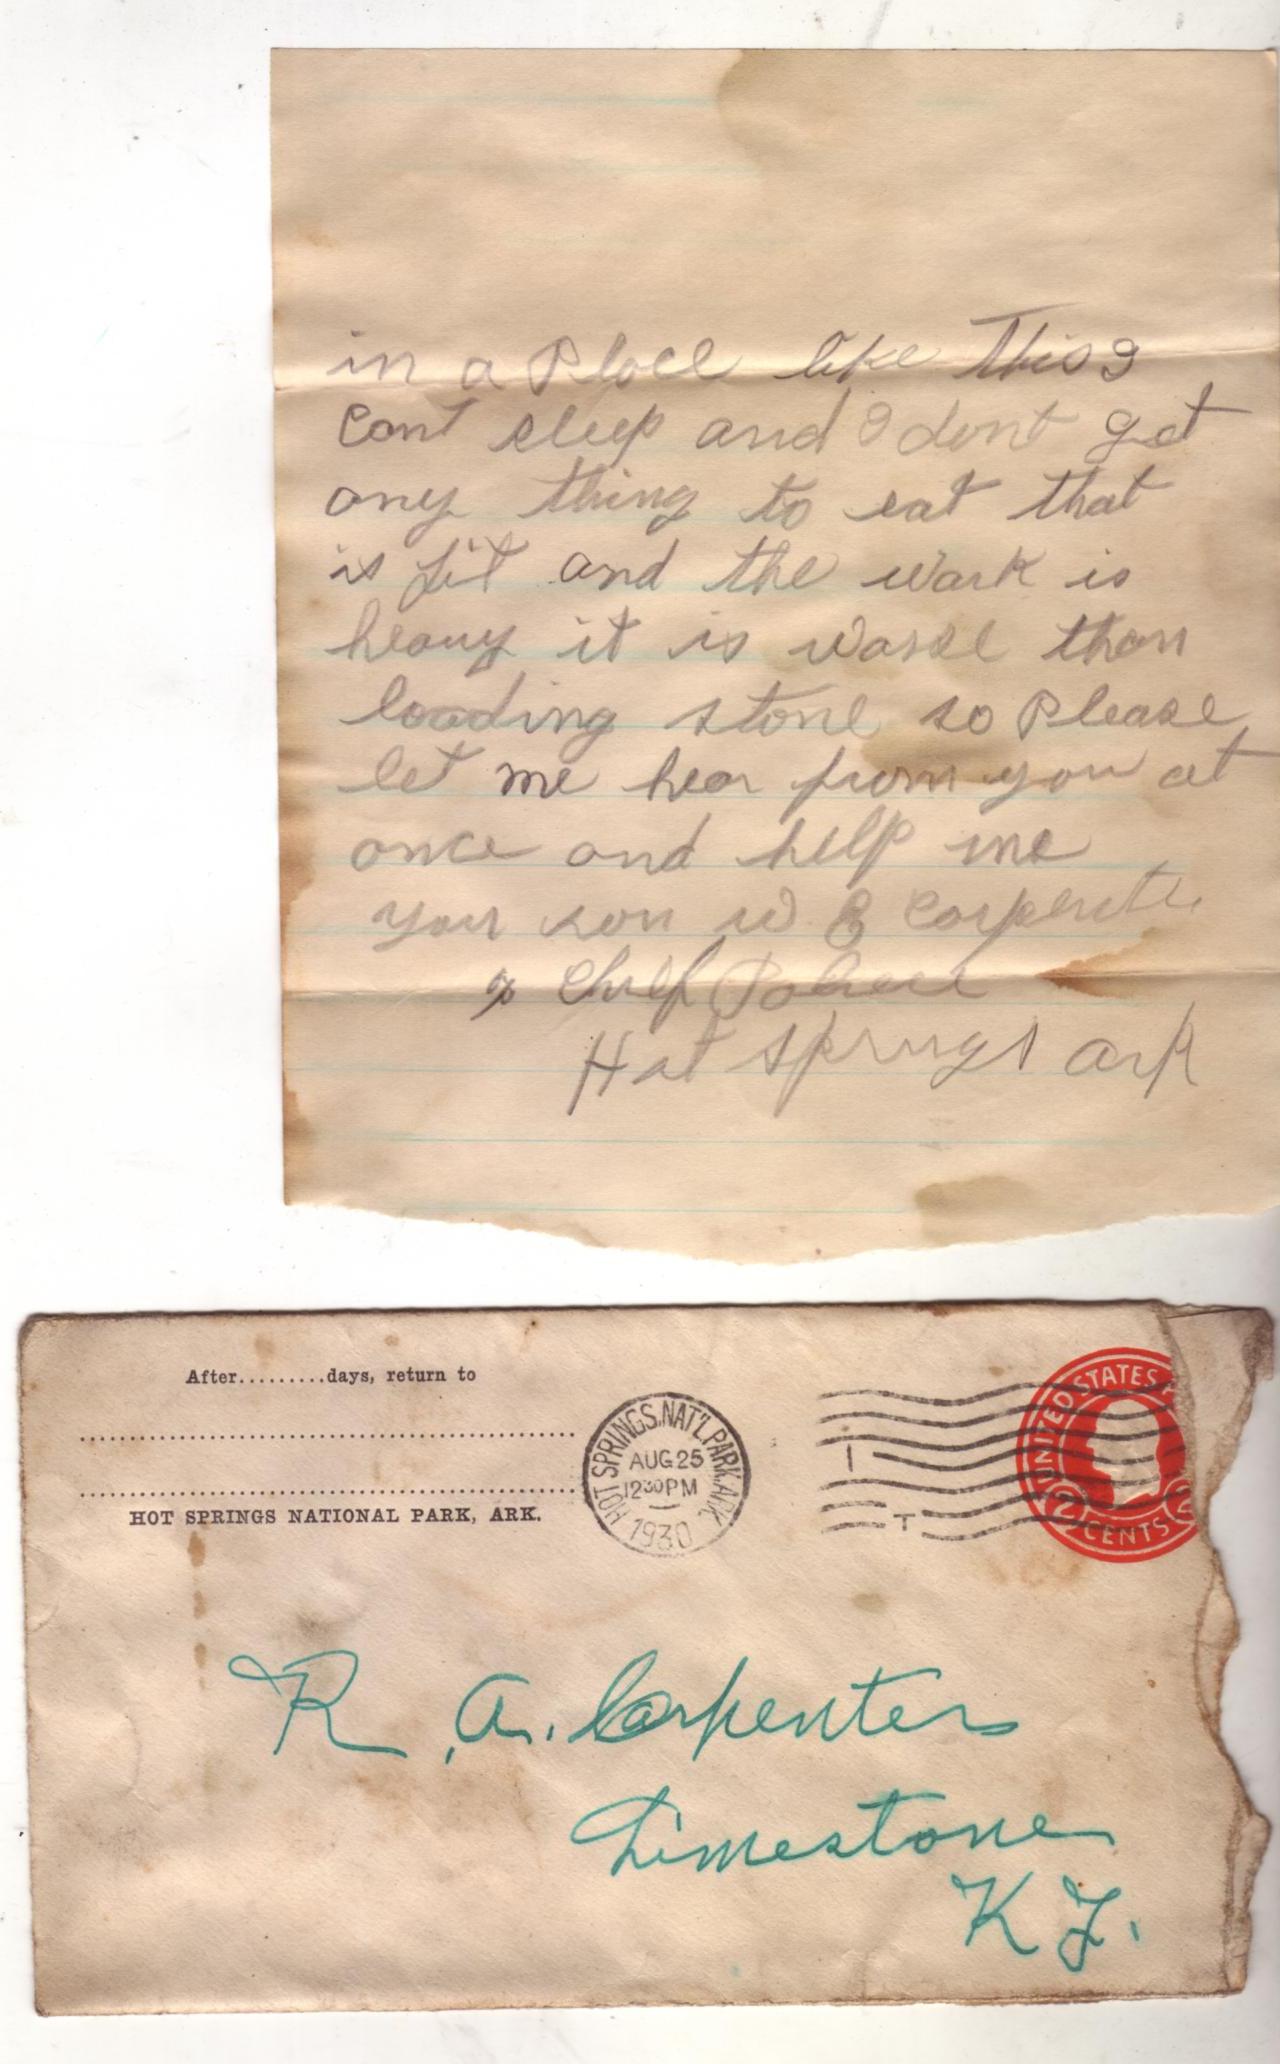 in a Place like This I
Cant sleep and I dont get
any thing to eat that
is fit and the work is
heavy it is worse than
loading stone so Please
let me hear from you at
once and help me
your son W E Carpenter
% Chief Police
Hot Springs Ark
After.........days, return to
HOT SPRINGS NATIONAL PARK, ARK.
HOT SPRINGS NAT'L PARK, ARK.
AUG 25
12 30 PM
1930
UNITED STATES
2 CENTS 2
R. A. Carpenter
Limestone
KY.